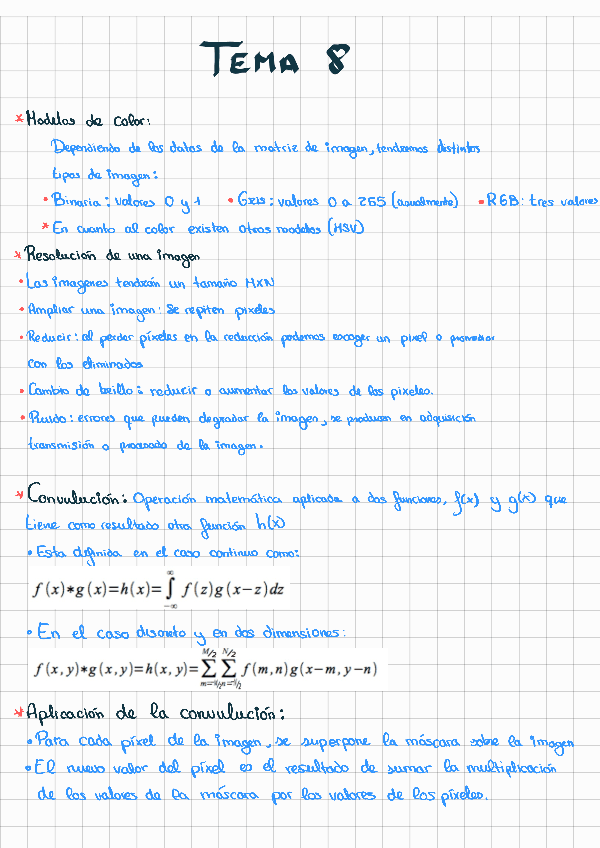 TEMA 8
* Modelos de color:
Dependiendo de los datos de la matriz de imagen, tendremos distintos
tipos de imagen:
• Binaria: valores 0 y 1 • Gris: valores 0 a 265 (usualmente) • RGB: tres valores
* En cuanto al color existen otros modelos (HSV)
* Resolución de una imagen
• Las imagenes tendrán un tamaño MXN
• Ampliar una imagen: Se repiten pixeles
• Reducir: al perder píxeles en la reducción podemos escoger un pixel o promediar
con los eliminados
• Cambio de brillo: reducir o aumentar los valores de los pixeles.
• Ruido: errores que pueden degradar la imagen, se producen en adquisición
transmisión o procesado de la imagen.
* Convulución: Operación matemática aplicada a dos funciones, f(x) y g(x) que
tiene como resultado otra función h(x)
• Esta definida en el caso continuo como:
f(x)*g(x)=h(x)=∫_{-∞}^{∞} f(z)g(x-z)dz
• En el caso discreto y en dos dimensiones:
f(x,y)*g(x,y)=h(x,y)=∑_{m=-M/2}^{M/2} ∑_{n=-N/2}^{N/2} f(m,n)g(x-m,y-n)
* Aplicación de la convulución:
• Para cada píxel de la imagen, se superpone la máscara sobre la imagen
• El nuevo valor del píxel es el resultado de sumar la multiplicación
de los valores de la máscara por los valores de los píxeles.